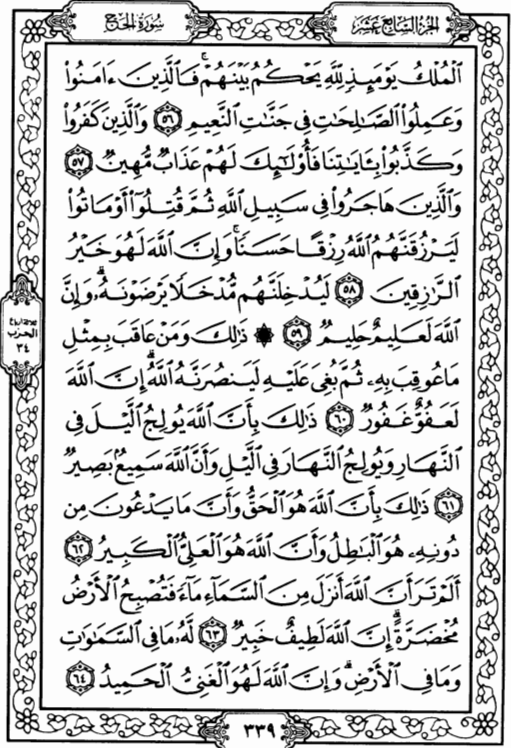 الجزء السابع عشر
سورة الحج
الْمُلْكُ يَوْمَئِذٍ لِّلَّهِ يَحْكُمُ بَيْنَهُمْ ۚ فَالَّذِينَ ءَامَنُوا۟
وَعَمِلُوا۟ الصَّالِحَاتِ فِي جَنَّاتِ النَّعِيمِ ٥٦ وَالَّذِينَ كَفَرُوا۟
وَكَذَّبُوا۟ بِـَٔايَاتِنَا فَأُو۟لَـٰٓئِكَ لَهُمْ عَذَابٌ مُّهِينٌ ٥٧
وَالَّذِينَ هَاجَرُوا۟ فِي سَبِيلِ اللَّهِ ثُمَّ قُتِلُوٓا۟ أَوْ مَاتُوا۟
لَيَرْزُقَنَّهُمُ اللَّهُ رِزْقًا حَسَنًا ۚ وَإِنَّ اللَّهَ لَهُوَ خَيْرُ
الرَّازِقِينَ ٥٨ لَيُدْخِلَنَّهُم مُّدْخَلًا يَرْضَوْنَهُۥ ۗ وَإِنَّ
اللَّهَ لَعَلِيمٌ حَلِيمٌ ٥٩ ۞ ذَٰلِكَ وَمَنْ عَاقَبَ بِمِثْلِ
مَا عُوقِبَ بِهِۦ ثُمَّ بُغِيَ عَلَيْهِ لَيَنصُرَنَّهُ اللَّهُ ۗ إِنَّ اللَّهَ
لَعَفُوٌّ غَفُورٌ ٦٠ ذَٰلِكَ بِأَنَّ اللَّهَ يُولِجُ الَّيْلَ فِي
النَّهَارِ وَيُولِجُ النَّهَارَ فِي الَّيْلِ وَأَنَّ اللَّهَ سَمِيعٌۢ بَصِيرٌ
٦١ ذَٰلِكَ بِأَنَّ اللَّهَ هُوَ الْحَقُّ وَأَنَّ مَا يَدْعُونَ مِن
دُونِهِۦ هُوَ الْبَاطِلُ وَأَنَّ اللَّهَ هُوَ الْعَلِيُّ الْكَبِيرُ ٦٢
أَلَمْ تَرَ أَنَّ اللَّهَ أَنزَلَ مِنَ السَّمَآءِ مَآءً فَتُصْبِحُ الْأَرْضُ
مُخْضَرَّةً ۗ إِنَّ اللَّهَ لَطِيفٌ خَبِيرٌ ٦٣ لَّهُۥ مَا فِي السَّمَاوَاتِ
وَمَا فِي الْأَرْضِ ۗ وَإِنَّ اللَّهَ لَهُوَ الْغَنِيُّ الْحَمِيدُ ٦٤
الحزب
٣٤
٣٣٩